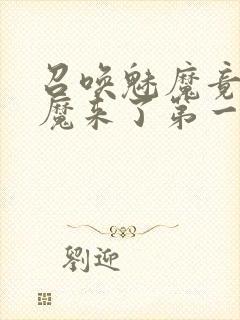 召唤魅魔竟
魔来了第一
劉迎